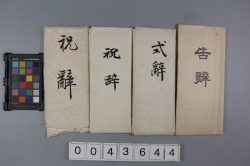 祝辭
祝辞
式辭
告辭
0043644